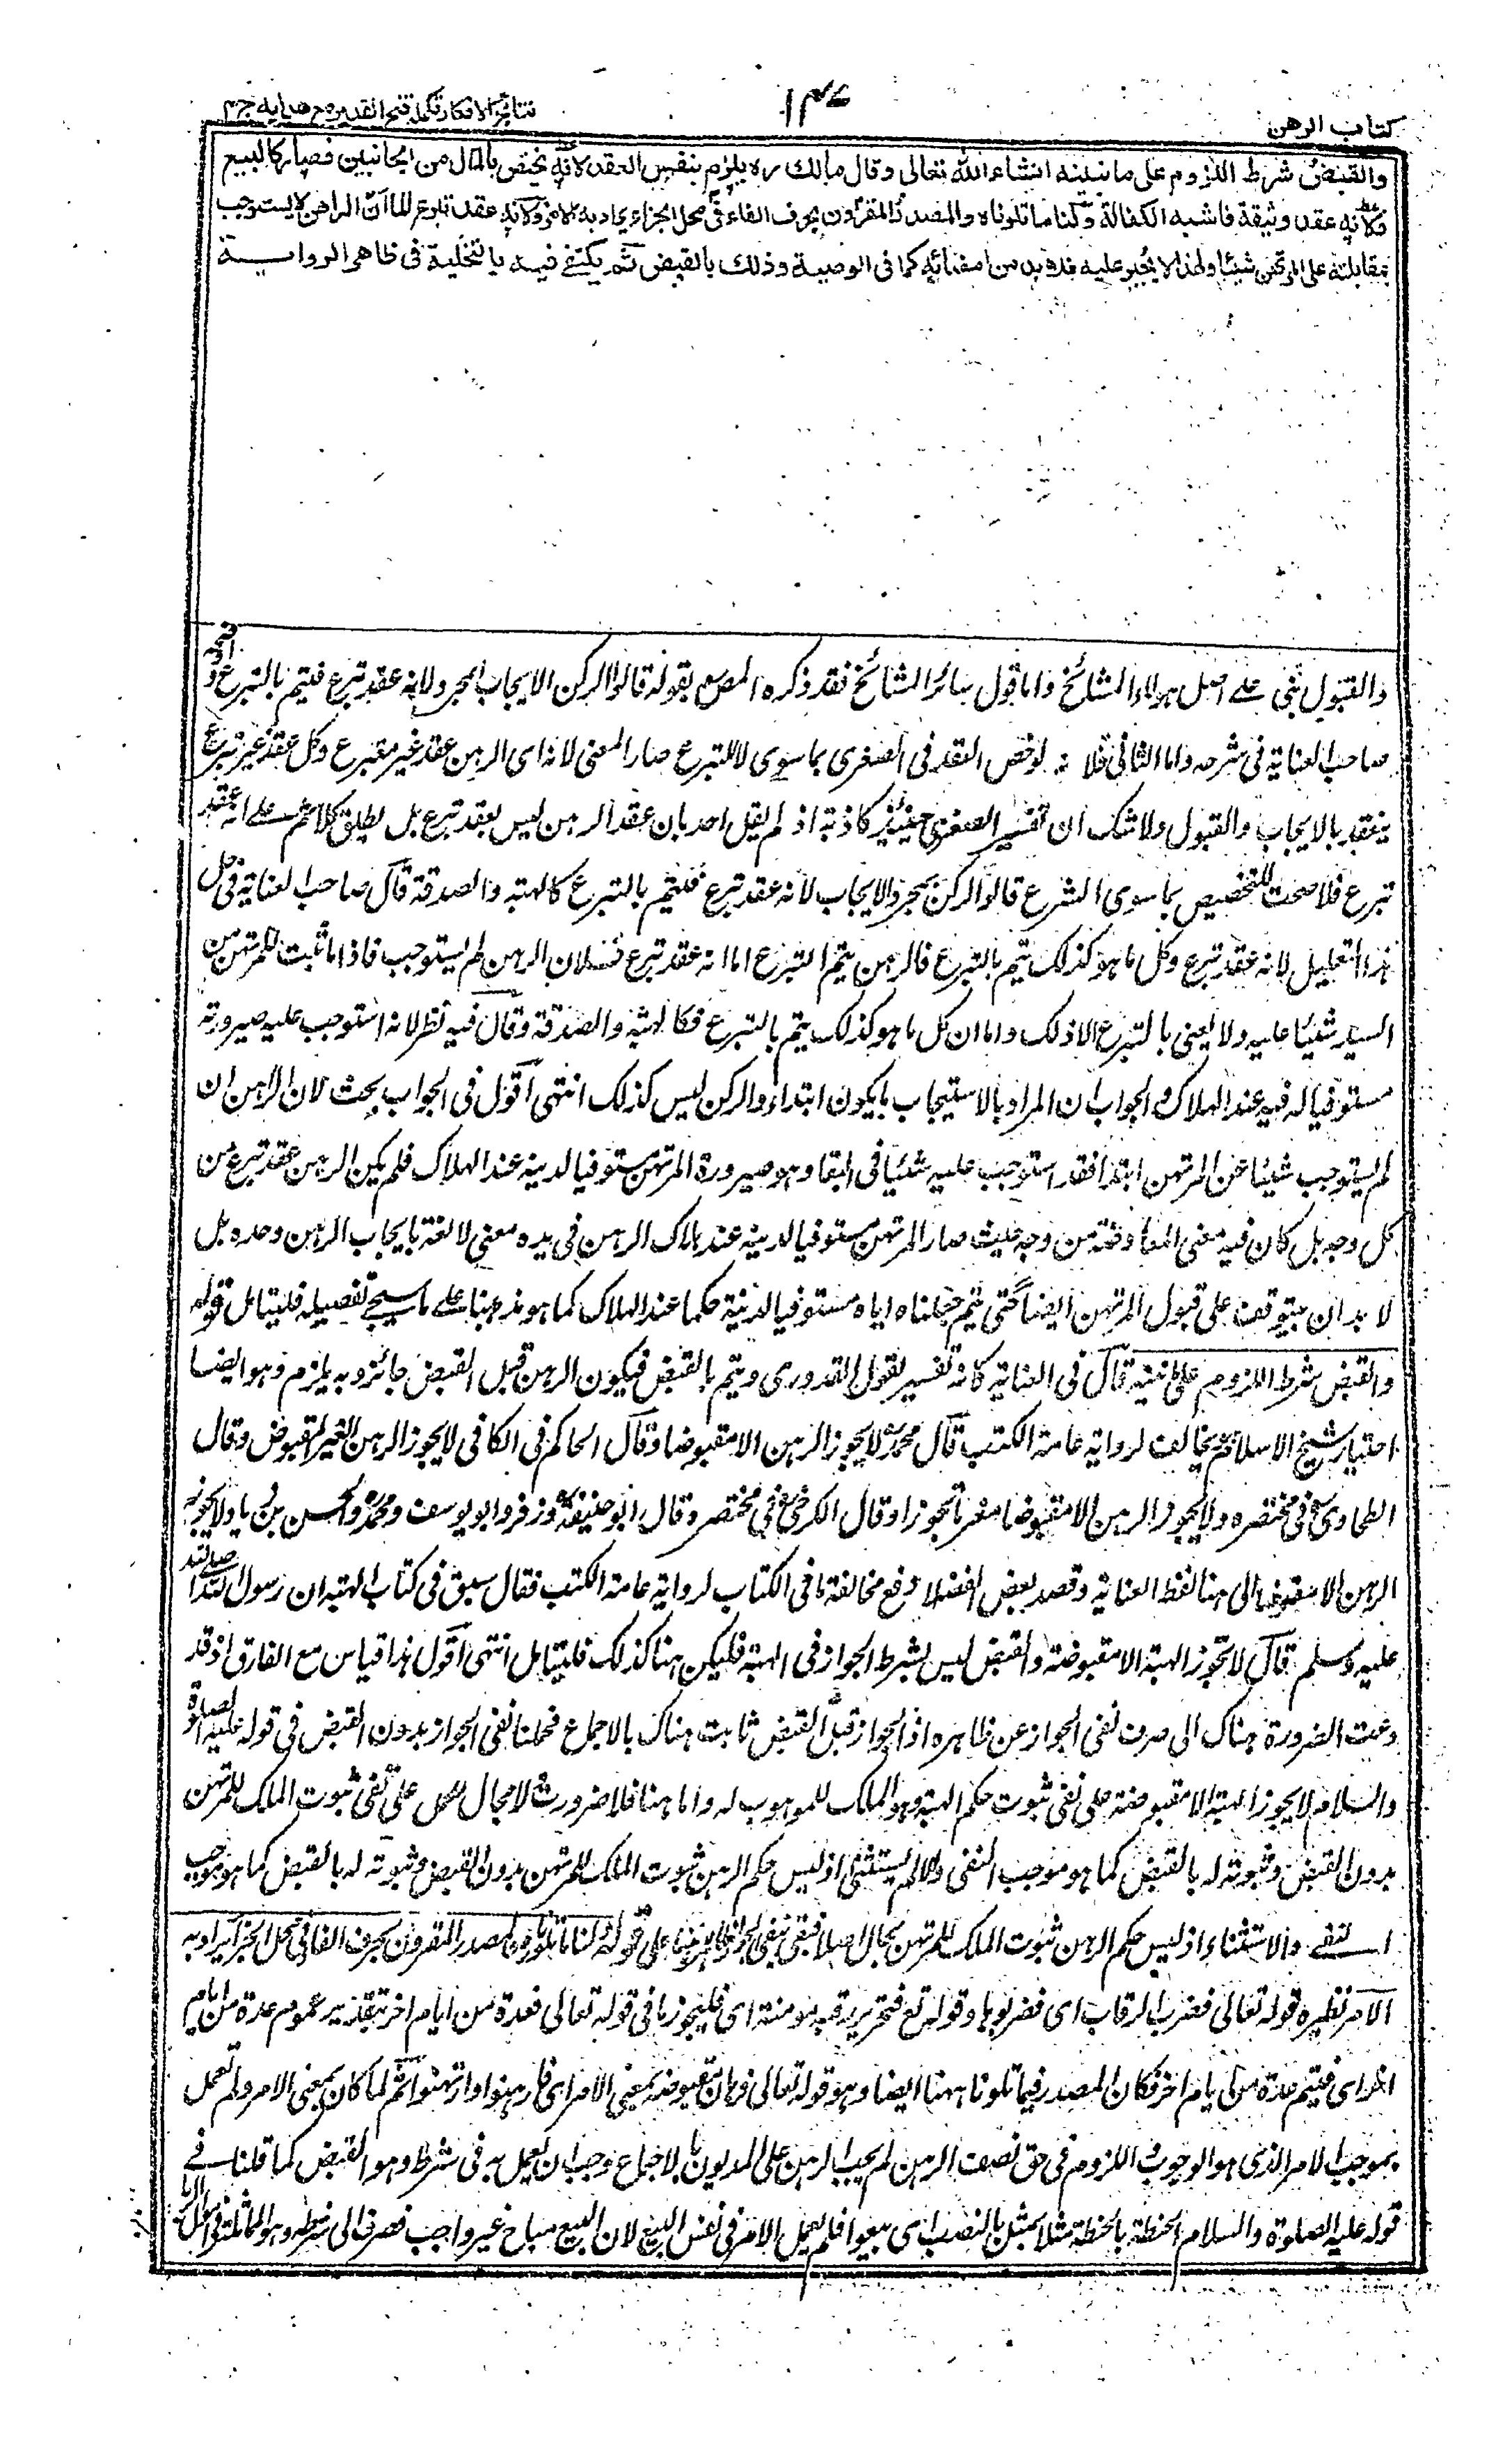 كتاب الرهن
نتائج الافكار تكملة فتح القدير مع هدايه ج ٤
والقبض شرط اللزوم على ما نبينه انشاء الله تعالى وقال مالك ره يلزم بنفس العقد لانه يختص بالمال من الجانبين فصار كالبيع
ولانه عقد وثيقة فاشبه الكفالة ولنا ما تلوناه والمصدر المقرون بحرف الفاء في محل الجزاء يراد به الامر ولانه عقد تبرع لما ان الراهن لا يستوجب
بمقابلته على المرتهن شيئا ولهذا لا يجبر عليه فلا بد من امضائه كما في الوصية وذلك بالقبض ثم يكتفى فيه بالتخلية في ظاهر الرواية
والقبول نبنى على اصل هولاء المشائخ واما قول سائر المشائخ فقد ذكره المص بقوله قالوا الركن الايجاب المجرد لانه عقد تبرع فيتم بالتبرع
صاحب العناية في شرحه واما الثاني فلانه لو خص العقد في الصغرى بما سوى التبرع صار المعنى لانه اى الرهن عقد غير تبرع وكل عقد غير تبرع
ينعقد بالايجاب والقبول ولا شك ان تفسير الصغرى حينئذ كاذبة اذ لم يقل احد بان عقد الرهن ليس بعقد تبرع بل يطلق كلامهم على انه عقد
تبرع فلا صحت للتخصيص بما سوى التبرع قالوا الركن مجرد الايجاب لانه عقد تبرع فيتم بالتبرع كالهبة والصدقة قال صاحب العناية في حل
هذا التعليل لانه عقد تبرع وكل ما هو كذلك يتم بالتبرع فالرهن يتم بالتبرع اما انه عقد تبرع فلان الرهن لم يستوجب فاذا ما ثبت للمرتهن من
اليد شيئا عليه ولا يعنى بالتبرع الا ذلك واما ان كل ما هو كذلك يتم بالتبرع فكالهبة والصدقة وقال فيه نظر لانه استوجب عليه صيرورته
مستوفيا له فيه عند الهلاك والجواب ان المراد بالاستيجاب ما يكون ابتداء والركن ليس كذلك انتهى اقول في الجواب بحث لان الراهن ان
لم يستوجب شيئا عن المرتهن ابتدا فقد استوجب عليه شيئا في البقا وهو صيرورة المرتهن مستوفيا لدينه عند الهلاك فلم يكن الرهن عقد تبرع من
كل وجه بل كان فيه معنى المعاوضة من وجه حيث صار المرتهن مستوفيا لدينه عند هلاك الرهن في يده معنى لا لغة بايجاب الراهن وحده بل
لا بد ان يتوقف على قبول المرتهن ايضا حتى يتم جعلناه اياه مستوفيا لدينه حكما عند الهلاك كما هو مذهبنا على ما سيجئ تفصيله فليتامل قوله
والقبض شرط اللزوم على ما نبينه قال في العناية كانه تفسير لقول القدورى ويتم بالقبض فيكون الرهن قبل القبض جائز وبه يلزم وهو ايضا
اختيار شيخ الاسلام وهو يخالف لرواية عامة الكتب قال محمد ره لا يجوز الرهن الا مقبوضا وقال الحاكم في الكافي لا يجوز الرهن الغير المقبوض وقال
الطحاوى في مختصره ولا يجوز الرهن الا مقبوضا مفرغا محوزا وقال الكرخى في مختصره وقال ابو حنيفة ره وزفر وابو يوسف ومحمد والحسن بن زياد لا يجوز
الرهن الا مقبوضا الى هنا لفظ العناية وقصد بعض الفضلا دفع مخالفة ما في الكتاب لرواية عامة الكتب فقال سبق في كتاب الهبة ان رسول الله صلى الله
عليه وسلم قال لا تجوز الهبة الا مقبوضة والقبض ليس بشرط الجواز في الهبة فليكن هنا كذلك فليتامل انتهى اقول هذا قياس مع الفارق اذ قد
دعت الضرورة هناك الى صرف نفى الجواز عن ظاهره اذ الجواز قبل القبض ثابت هناك بالاجماع فحملنا نفى الجواز بدون القبض في قوله عليه الصلوة
والسلام لا يجوز الهبة الا مقبوضة على نفى ثبوت حكم الهبة وهو الملك للموهوب له واما هنا فلا ضرورة لا مجال للحمل على نفى ثبوت الملك للمرتهن
بدون القبض وثبوته له بالقبض كما هو موجب النفى والاستثنى اذ ليس حكم الرهن ثبوت الملك للمرتهن بدون القبض وثبوته له بالقبض كما هو موجب
النفى والاستثناء اذ ليس حكم الرهن ثبوت الملك للمرتهن بحال اصلا فبقى نفى الجواز قوله ولنا ما تلونا والمصدر المقرون بحرف الفا في محل الجزاء يراد به
الامر نظيره قوله تعالى فضرب الرقاب اى فضربوها وقوله تع فتحرير رقبة مومنة اى فليحرر وما في قوله تعالى فعدة من ايام اخر بتقدير عموم عدة من ايام
اخر اى فليتم عدة من ايام اخر فكان المصدر فيما تلونا ههنا ايضا وهو قوله تعالى فرهان مقبوضة بمعنى الامر اى فارهنوا وارتهنوا ثم لما كان بمعنى الامر ولم تعمل
بموجب الامر الذى هو الوجوب واللزوم في حق نفس الرهن لم يجب الرهن على المديون بالاجماع وجب ان يعمل به في شرطه وهو القبض كما قلنا في
قوله عليه الصلوة والسلام الحنطة بالحنطة مثلا بمثل بالنصب اى بيعوا فلم يعمل الامر في نفس البيع لان البيع مباح غير واجب فصرف الى شرطه وهو المماثلة في اموال الربا